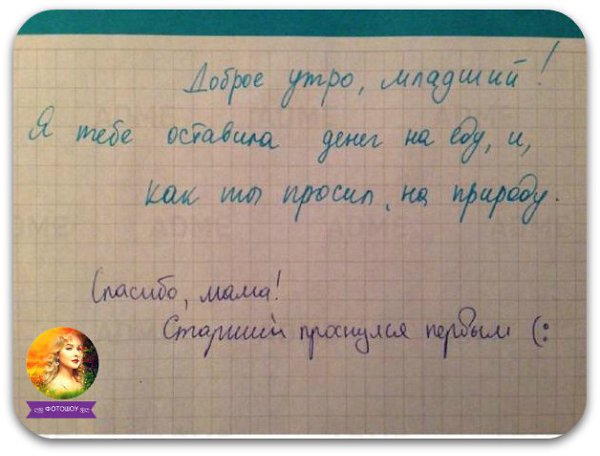 Доброе утро, младший!
Я тебе оставила денег на еду, и,
как ты просил, на природу.
Спасибо, мама!
Старший проснулся первым (:
ФОТОШОУ